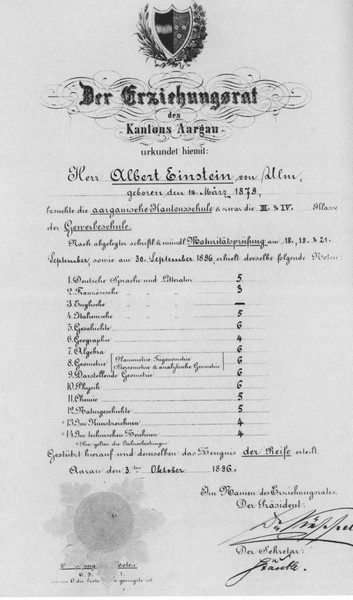 Der Erziehungsrat
des
Kantons Aargau
urkundet hiemit:
Herr Albert Einstein von Ulm,
geboren den 14. März 1879,
besuchte die aargauische Kantonsschule & zwar die III. & IV. Klasse
der Gewerbeschule.
Nach abgelegter schriftl. & mündl. Maturitätsprüfung am 18., 19. & 21.
September, sowie am 30. September 1896, erhielt derselbe folgende Noten:
1. Deutsche Sprache und Litteratur 5
2. Französische " " " 3
3. Englische " " " —
4. Italienische " " " 5
5. Geschichte 6
6. Geographie 4
7. Algebra 6
8. Geometrie { Planimetrie, Trigonometrie / Stereometrie & analytische Geometrie } 6
9. Darstellende Geometrie 6
10. Physik 6
11. Chemie 5
12. Naturgeschichte 5
*13. Im Kunstzeichnen 4
*14. Im technischen Zeichnen 4
* Hier gelten die Jahresleistungen.
Gestützt hierauf wird demselben das Zeugnis der Reife erteilt.
Aarau den 3ten Oktober 1896.
Im Namen des Erziehungsrates,
Der Präsident:
Der Sekretär: